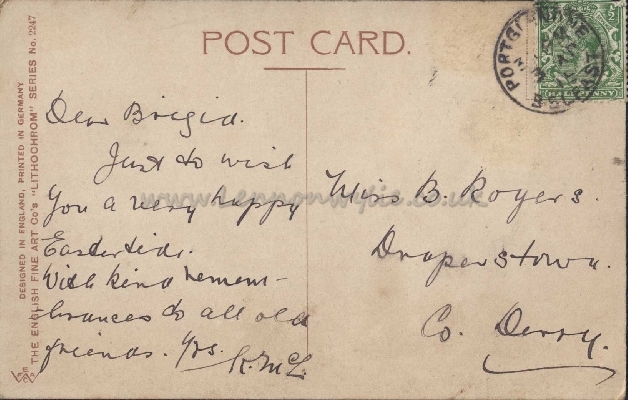 POST CARD.
DESIGNED IN ENGLAND, PRINTED IN GERMANY
THE ENGLISH FINE ART Co's "LITHOCHROM" SERIES No. 2247
Dear Brigid.
Just to wish
You a very happy
Eastertide.
With kind remem-
brances to all old
friends. Yrs.
K. McL.
Miss B. Rogers.
Draperstown.
Co. Derry.
www.lennonwylie.co.uk
PORTGLENONE
BELFAST